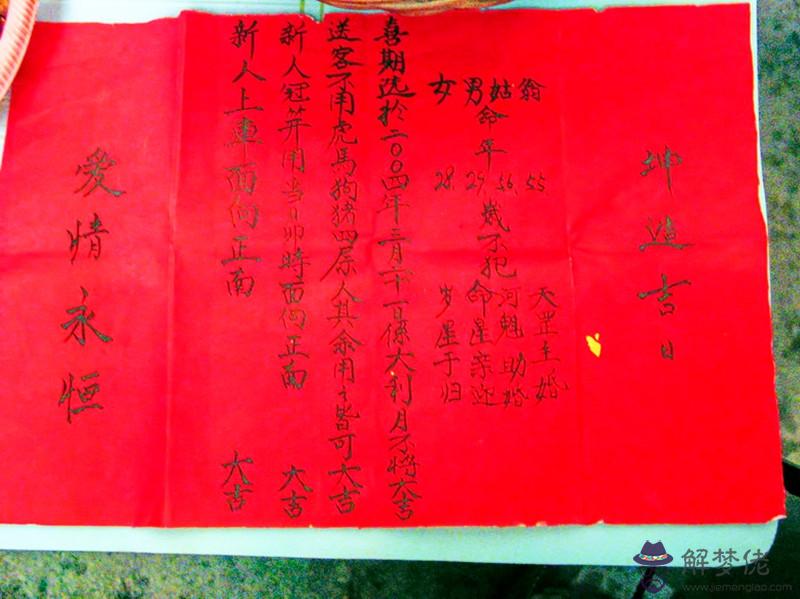 坤造吉日
翁 55 天罡主婚
姑 56 河魁助婚
命年 歲不犯
男 29 命星亲迎
女 28 岁星于归
喜期选於二00四年三月二十一日係大利月不将大吉
送客不用虎馬狗猪四属人其余用之皆可大吉
新人冠笄用当日卯時面向正南 大吉
新人上車面向正南 大吉
愛情永恒
解梦佬
www.jiemenglao.com